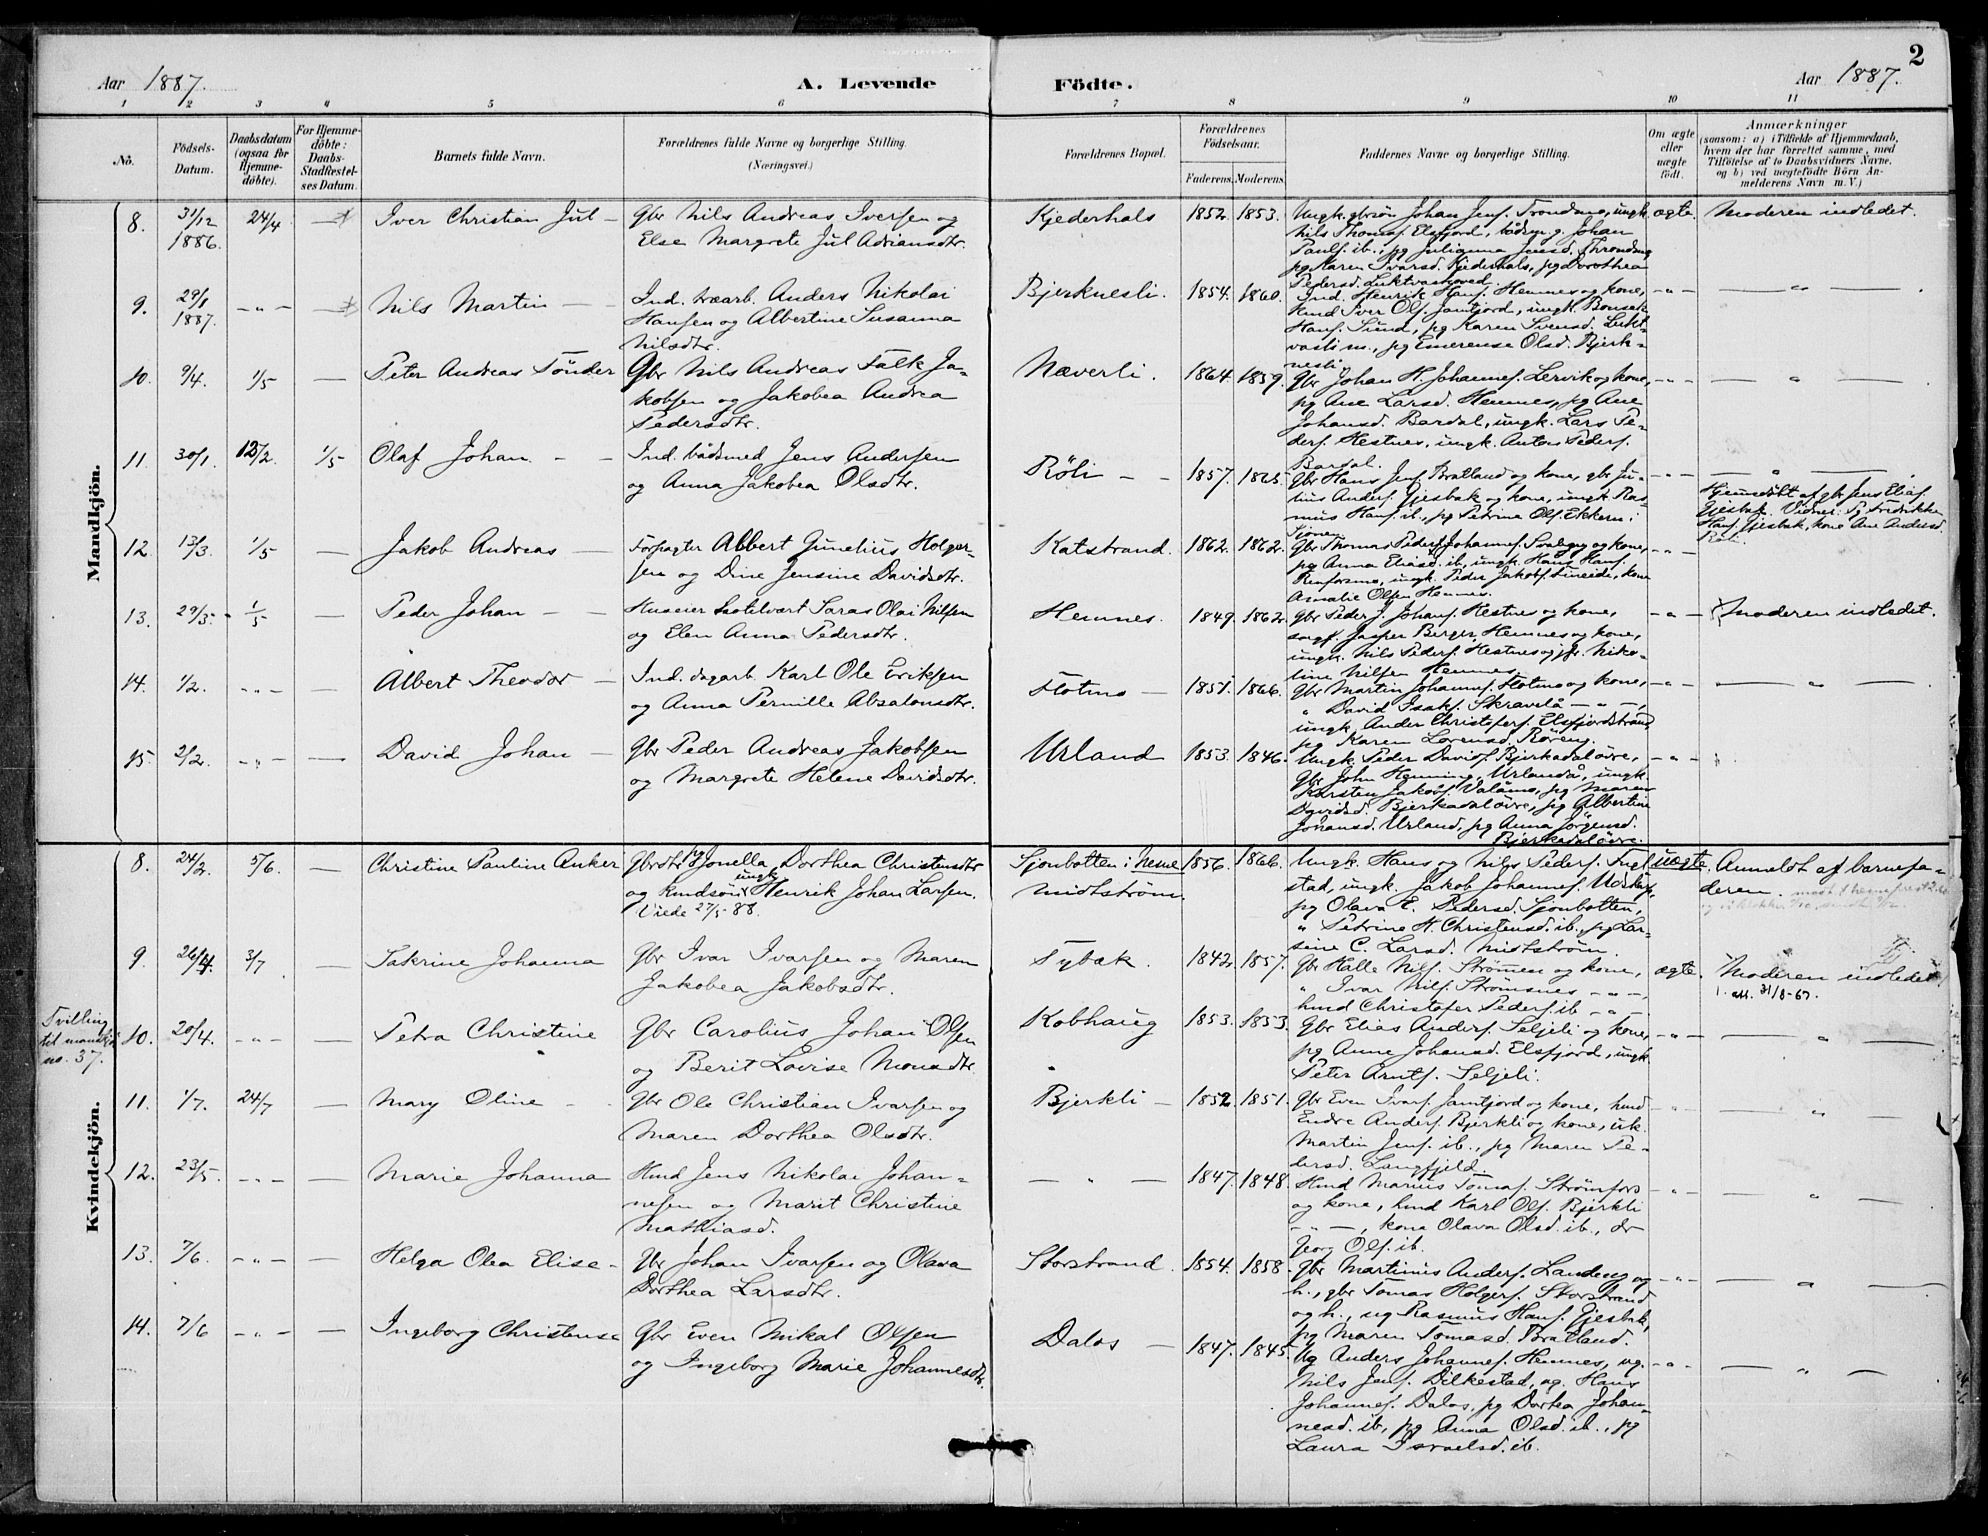 2
Aar 1887.
A. Levende
Födte.
Aar 1887.
1 2 3 4 5 6 7 8 9 10 11
No.
Födsels-
Datum.
Daabsdatum
(ogsaa for
Hjemme-
döbte).
For Hjemme-
döbte:
Daabs-
Stadfestel-
ses Datum.
Barnets fulde Navn.
Forældrenes fulde Navne og borgerlige Stilling.
(Næringsvei.)
Forældrenes Bopæl.
Forældrenes
Födselsaar.
Faderens. Moderens.
Faddernes Navne og borgerlig Stilling.
Om ægte
eller
uægte
födt.
Anmærkninger
(saasom: a) i Tilfælde af Hjemmedaab,
hvem der har forrettet samme, med
Tilföielse af to Daabsvidners Navne,
og b) ved uægtefödte Börn An-
melderens Navn m. V.)
Mandkjön.
8. 31/12 1886. 24/4 Iver Christian Jul
Gbr Nils Andreas Iversen og
Else Margrete Jul Adriansdtr.
Kjederhals 1852. 1853.
Ungk. gbrsön Johan Jens. Trondmo, ungk.
Nils Thomas. Elsfjord, bådsm. g. Johan
Pauls. ib., pg Julianna Jensd. Throndmo
pg Karen Ivarsd. Kjederhals, pg Dorothea
Pedersd. Luktvashoved.
ægte. Moderen indledet.
9. 29/1 1887. - " - Nils Martin
Ind. træarb. Anders Nikolai
Hansen og Albertine Susanna
Nilsdtr.
Bjerknesli. 1854. 1860.
Ind. Henrik Hans. Hemnes og kone,
Hmd Iver Ols. Jamtjord, ungk.
Hans. Sund, pg Karen Svensd. Lukt-
vasli m., pg Emerense Olsd. Bjerk-
nesli.
- " -
10. 9/4. 1/5 Peter Andreas Tönder
Gbr Nils Andreas Falk Ja-
kobsen og Jakobea Andrea
Pedersdtr.
Næverli. 1864. 1859.
Gbr Johan H. Johannes. Lervik og kone,
pg Ane Larsd. Hemnes, pg Ane
Johansd. Bardal, ungk. Lars Pe-
ders. Hestnes, ungk. Anton Peders.
Bardal.
- " -
11. 30/1. 13/2. 1/5 Olaf Johan
Ind. bådsmed Jens Andersen
og Anna Jakobea Olsdtr.
Röli 1857. 1865.
Gbr Hans Jens. Bratland og kone, gbr Ju-
nius Anders. Gjesbak og kone, ungk. Ras-
mus Hans. ib., pg Petrine Ols. Ekkern i
Sjonen
- " -
Hjemmedöbt af gbr Jens Elias.
Gjesbak. Vidner: Pg Fredrikke
Hans. Gjesbak, kone Ane Andersd.
Röli.
12. 13/3. 1/5 Jakob Andreas
Forpagter Albert Gunelius Holger-
sen og Dine Jensine Davidsdtr.
Katstrand. 1862. 1862.
Gbr Thomas Peder Johannes. og kone,
pg Anna Eliasd. ib., ungk. Hans Hans.
Renforsmo, ungk. Peder Jakobs. Fineide, kone
Amalie Olsen Hemnes.
- " -
13. 29/3. 1/5 Peder Johan
Huseier hotelvært Saras Olai Nilsen
og Elen Anna Pedersdtr.
Hemnes. 1849. 1862.
Gbr Peder J. Johans. Hestnes og kone,
sagf. Jasper Berger Hemnes og kone,
ungk. Nils Peders. Hestnes og jfr. Niko-
line Nilsen Hemnes.
- " - Moderen indledet.
14. 1/2. - " - Albert Theodor
Ind. dagarb. Karl Ole Eriksen
og Anna Pernille Absalonsdtr.
Flotmo 1851. 1866.
Gbr Martin Johannes. Flotmo og kone,
" David Isaks. Skravelå - " -,
ungk. Ander Christofers. Elsfjordstrand,
pg Karen Lorensd. Röreng.
- " -
15. 2/2. - " - David Johan
Gbr Peder Andreas Jakobsen
og Margrete Helene Davidsdtr.
Urland 1853. 1846.
Ungk. Peder Davids. Bjerkadalöire,
Gbr John Henning, Urlandå, ungk.
Karsten Jakobs. Valåmo, pg Maren
Davidsd. Bjerkadalöire, pg Albertine
Johansd. Urland, pg Anna Jörgensd.
Bjerkadalöire.
- " -
Kvindekjön.
8. 24/2. 5/6. Christine Pauline Anker
Gbrdtr pg Jonella Dorthea Christensdtr
og kmdsön ungk. Henrik Johan Larsen.
Viede 27/5-88.
Sjonbotten i Nesne
Midtström. 1856. 1866.
Ungk. Hans og Nils Peders. Ingl-
stad, ungk. Jakob Johannes. Udskarp.
pg Olava E. Pedersd. Sjonbotten,
" Petrine H. Christensd. ib., pg Lar-
sine C. Larsd. Midtström
uægte. Anmeldt af barnefa-
deren.
9. 26/4. 3/7 Takrine Johanna
Gbr Ivar Ivarsen og Maren
Jakobea Jakobsdtr.
Tybæk. 1842. 1857.
Gbr Halle Nils. Strömen og kone,
" Ivar Nils. Strömsnes - " -,
hmd Christofer Peders. ib - " -
ægte. Moderen indledet
1. att. 31/8-67.
Tvilling
til mandkj.
no. 37.
10. 20/4. - " - Petra Christine
Gbr Carolius Johan Olsen
og Berit Lovise Monsdtr.
Kobhaug 1853. 1853.
Gbr Elias Anders. Seljeli og kone,
pg Anne Johansd. Elsfjord, ungk.
Peter Arnts. Seljeli.
- " -
11. 1/7. 24/7 Mary Oline
Gbr Ole Christian Ivarsen og
Maren Dorthea Olsdtr.
Bjerkli 1852. 1851.
Gbr Even Ivars. Jamtjord og kone, hmd
Endre Anders. Bjerkli og kone, uk.
Martin Jens. ib., pg Maren Pe-
dersd. Langfjeld.
- " -
12. 23/5. - " - Marie Johanna
Hmd Jens Nikolai Johan-
nesen og Marit Christine
Mathiasd.
- " - 1847. 1848.
Hmd Marius Tomas. Strömfors
og kone, hmd Karl Ols. Bjerkli
- " -, kone Olava Olsd. ib., dr
Georg Ols. ib.
- " -
13. 7/6. - " - Helga Olea Elise
Gbr Johan Ivarsen og Olava
Dorthea Larsdtr.
Storstrand. 1854. 1858.
Gbr Martinus Anders. Landeng og
h., gbr Tomas Holgers. Storstrand
og h., ug Rasmus Hans. Gjesbak,
pg Maren Tomasd. Bratland.
- " -
14. 7/6 - " - Ingeborg Christense
Gbr Even Mikal Olsen
og Ingeborg Marie Johannesdtr.
Dalos 1847. 1845.
Ug Anders Johannes. Hemnes, ug.
Nils Jens. Dilkestad, ug. Hans
Johannes. Dalos, pg Dortea Johan-
nesd. ib, pg Anna Olsd. ib., pg
Laura Israelsd. ib.
- " -